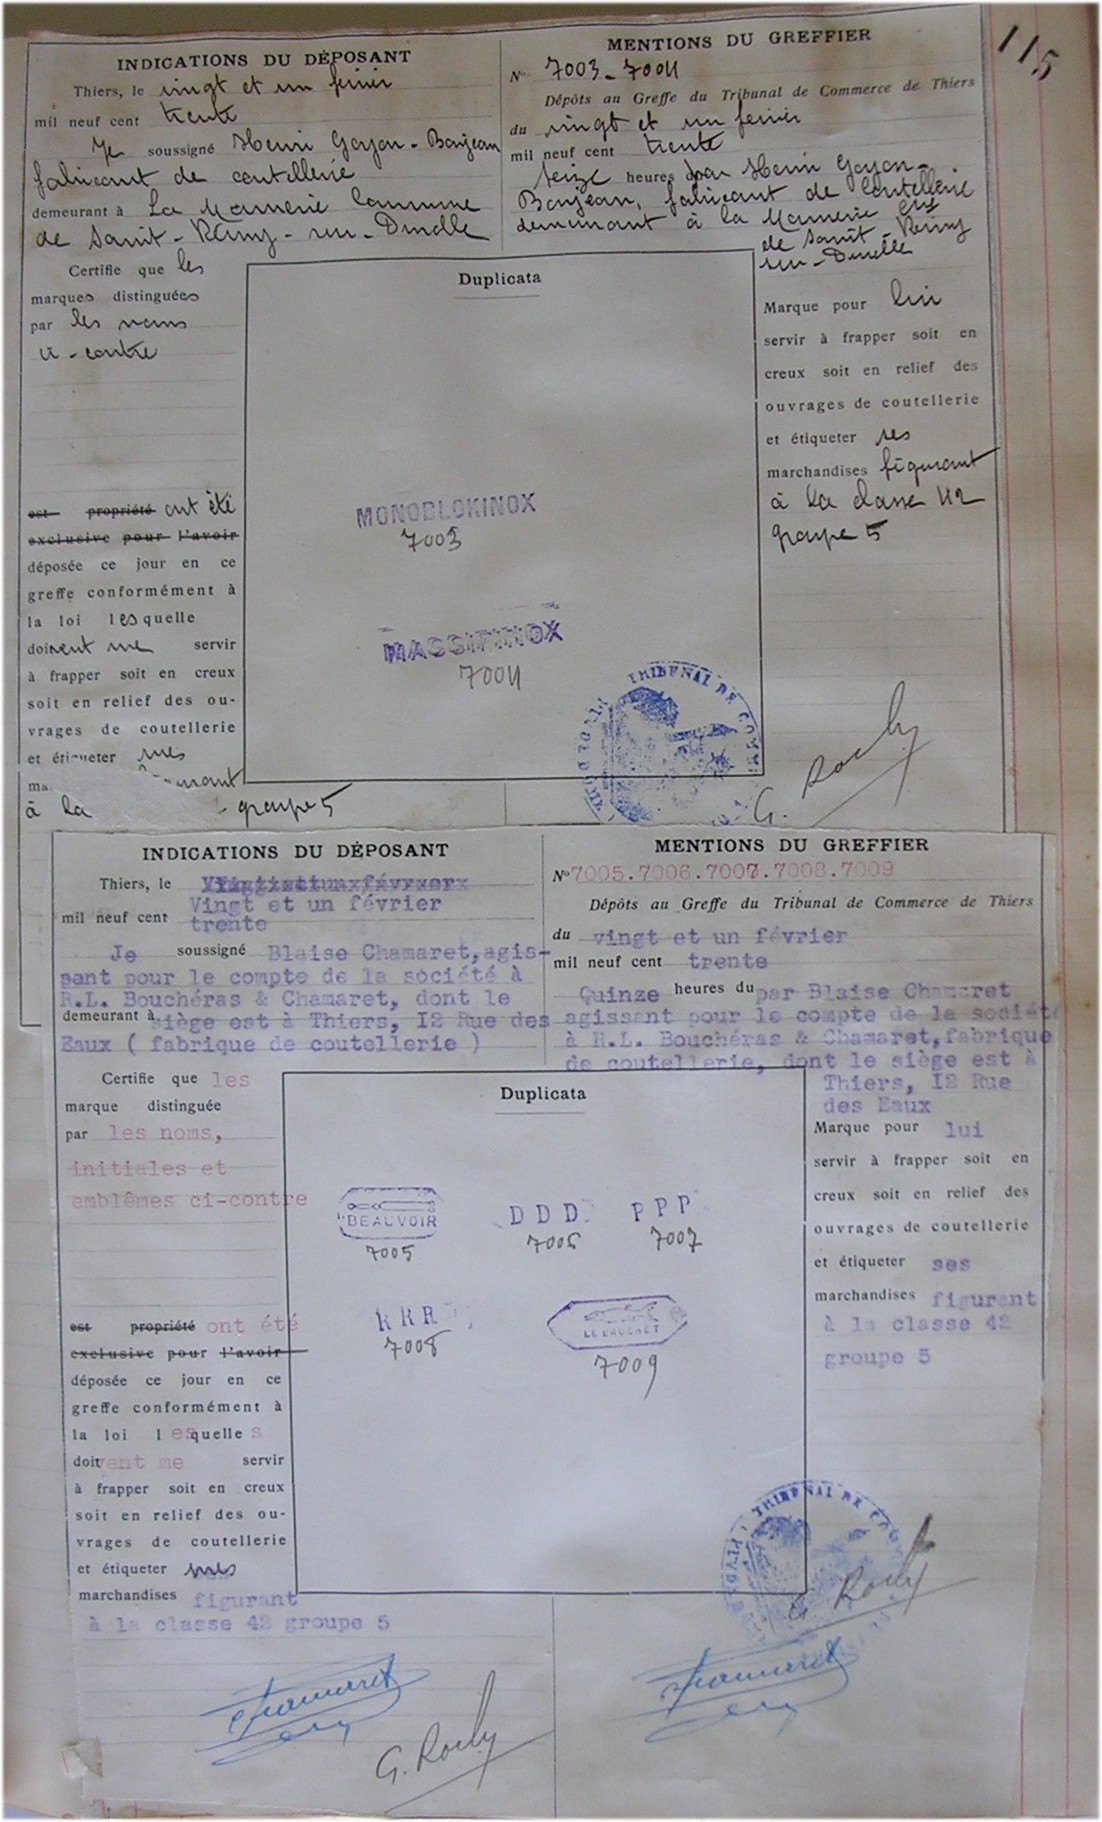 115
INDICATIONS DU DÉPOSANT
Thiers, le vingt et un février
mil neuf cent trente
Je soussigné Henri Goyon-Banjean
fabricant de coutellerie
demeurant à La Monnerie Commune
de Saint-Rémy-sur-Durolle
Certifie que les
marques distinguées
par les noms
ci-contre
est propriété ont été
exclusive pour l'avoir
déposée ce jour en ce
greffe conformément à
la loi lesquelle
doivent me servir
à frapper soit en creux
soit en relief des ou-
vrages de coutellerie
et étiqueter mes
ma
à la groupe 5
MENTIONS DU GREFFIER
No 7003-7004
Dépôts au Greffe du Tribunal de Commerce de Thiers
du vingt et un février
mil neuf cent trente
seize heures par Henri Goyon-
Banjean, fabricant de coutellerie
demeurant à la Monnerie cne
de Saint-Rémy
sur-Durolle
Duplicata
MONOBLOKINOX
7003
MASSIFINOX
7004
TRIBUNAL DE COMM
Marque pour lui
servir à frapper soit en
creux soit en relief des
ouvrages de coutellerie
et étiqueter ses
marchandises figurant
à la classe 42
groupe 5
INDICATIONS DU DÉPOSANT
Thiers, le
Vingt et un février
mil neuf cent trente
Je soussigné Blaise Chamaret, agis-
sant pour le compte de la société à
R.L. Bouchéras & Chamaret, dont le
demeurant à siège est à Thiers, I2 Rue des
Eaux ( fabrique de coutellerie )
Certifie que les
marque distinguée
par les noms,
initiales et
emblêmes ci-contre
est propriété ont été
exclusive pour l'avoir
déposée ce jour en ce
greffe conformément à
la loi lesquelles
doitvent me servir
à frapper soit en creux
soit en relief des ou-
vrages de coutellerie
et étiqueter mes
marchandises figurant
à la classe 42 groupe 5
MENTIONS DU GREFFIER
No 7005.7006.7007.7008.7009
Dépôts au Greffe du Tribunal de Commerce de Thiers
du vingt et un février
mil neuf cent trente
Quinze heures du par Blaise Chamaret
agissant pour le compte de la société
à R.L. Bouchéras & Chamaret, fabrique
de coutellerie, dont le siège est à
Thiers, I2 Rue
des Eaux
Duplicata
BEAUVOIR
7005
DDD
7006
PPP
7007
RRR
7008
LE BROCHET
7009
Marque pour lui
servir à frapper soit en
creux soit en relief des
ouvrages de coutellerie
et étiqueter ses
marchandises figurant
à la classe 42
groupe 5
TRIBUNAL DE CO
Chamaret
G. Rouly
Chamaret